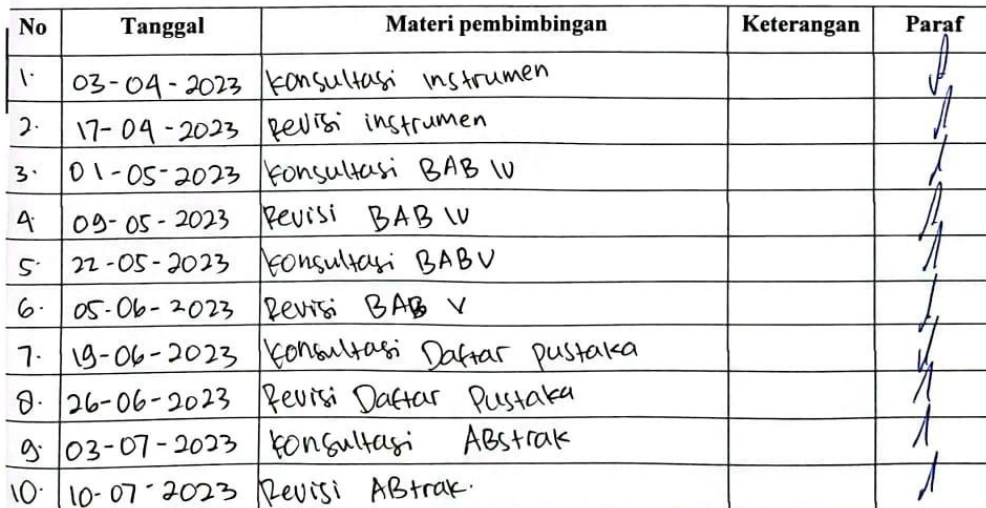 No Tanggal Materi pembimbingan Keterangan Paraf
1. 03-04-2023 Konsultasi instrumen
2. 17-04-2023 Revisi instrumen
3. 01-05-2023 Konsultasi BAB IV
4. 09-05-2023 Revisi BAB IV
5. 22-05-2023 Konsultasi BAB V
6. 05-06-2023 Revisi BAB V
7. 19-06-2023 Konsultasi Daftar pustaka
8. 26-06-2023 Revisi Daftar Pustaka
9. 03-07-2023 Konsultasi ABstrak
10. 10-07-2023 Revisi ABtrak.